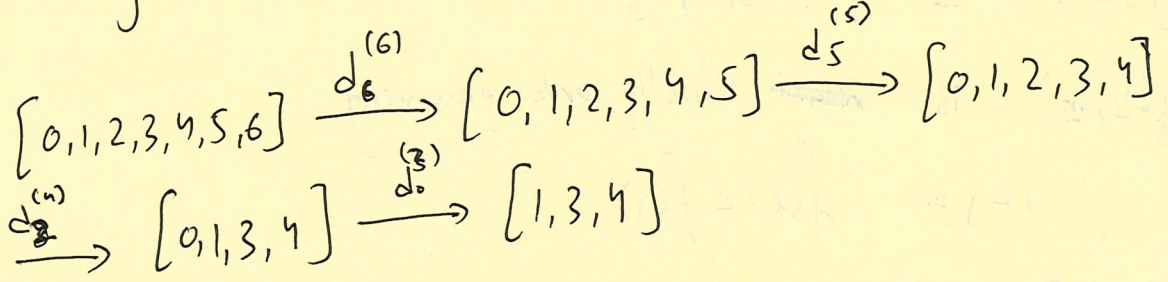 [0,1,2,3,4,5,6] \xrightarrow{d_6^{(6)}} [0,1,2,3,4,5] \xrightarrow{d_5^{(5)}} [0,1,2,3,4]
\xrightarrow{d_2^{(4)}} [0,1,3,4] \xrightarrow{d_0^{(3)}} [1,3,4]